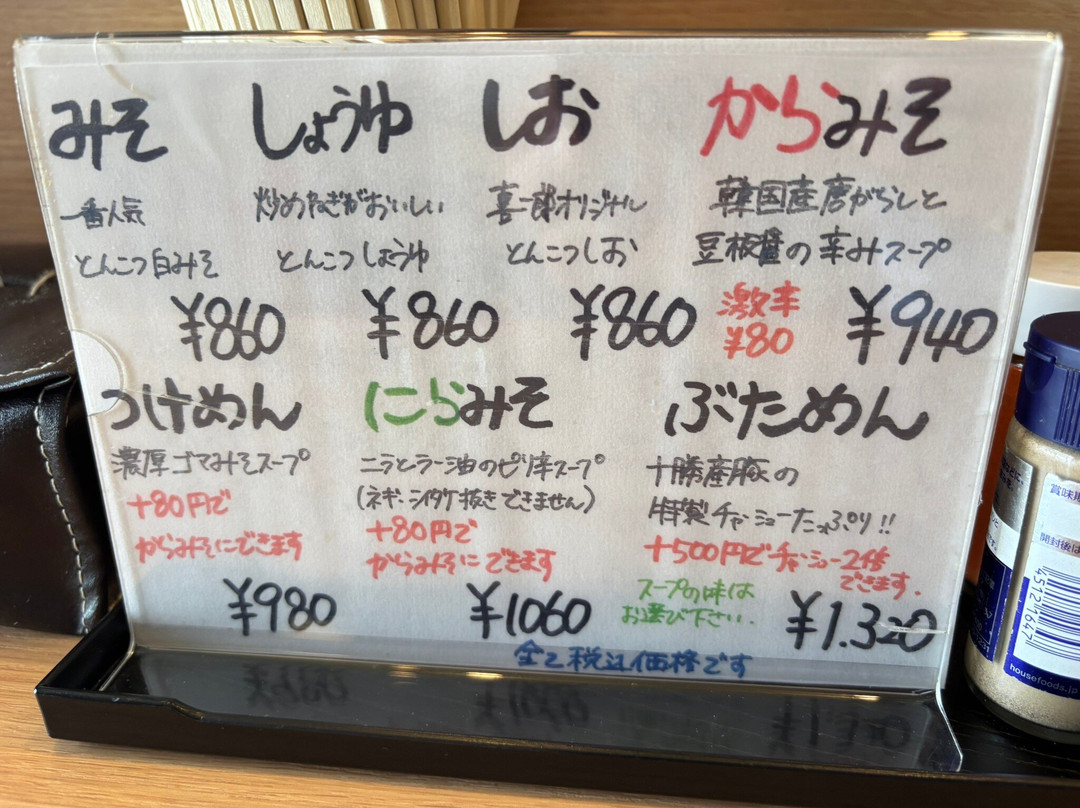 みそ
一番人気
とんこつ白みそ
¥860
しょうゆ
炒めたねぎがおいしい
とんこつしょうゆ
¥860
しお
喜一郎オリジナル
とんこつしお
¥860
からみそ
韓国産唐がらしと
豆板醤の辛みスープ
激辛
¥80
¥940
つけめん
濃厚ゴマみそスープ
+80円で
からみそにできます
¥980
にらみそ
ニラとラー油のピリ辛スープ
(ネギ、シイタケ抜きできません)
+80円で
からみそにできます
¥1060
ぶためん
十勝産豚の
特製チャーシューたっぷり!!
+500円でチャーシュー2倍
できます.
スープの味は
お選び下さい.
¥1.320
全て税込価格です
賞味期
開封後は
4512 1647
housefoods.jp